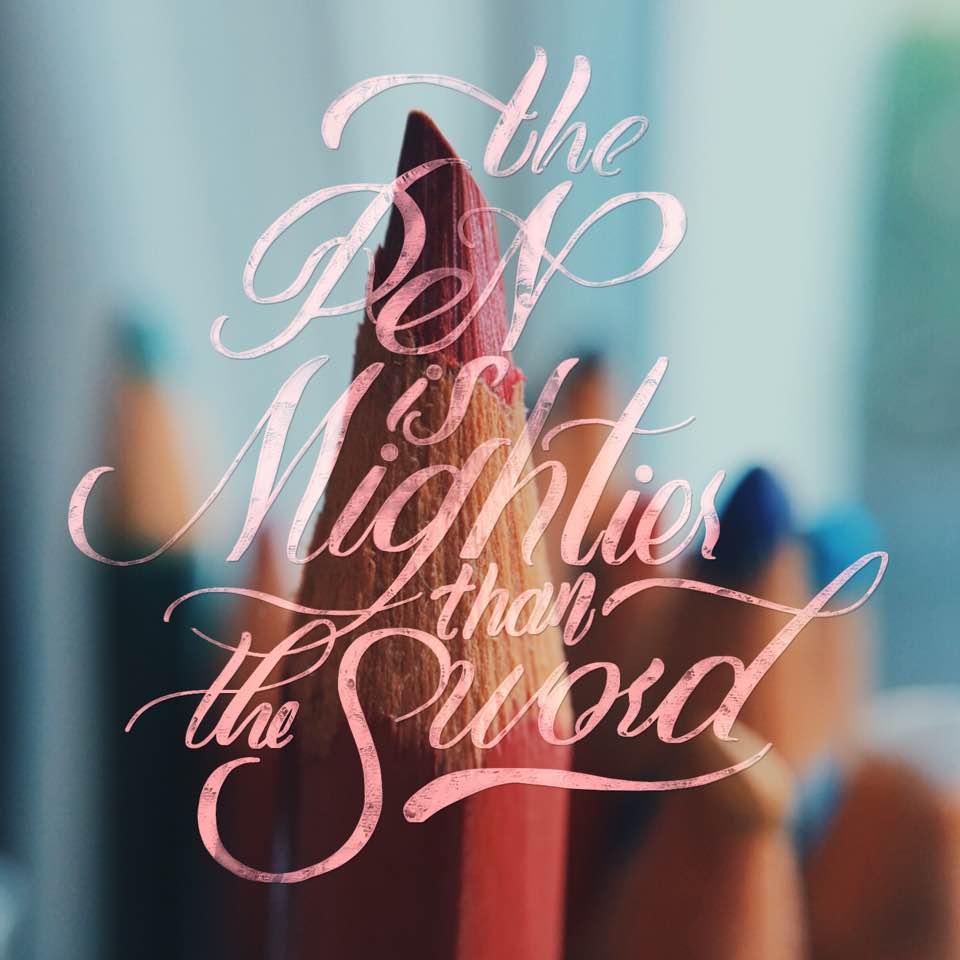 the
PeN
is
Mightier
than
the Sword